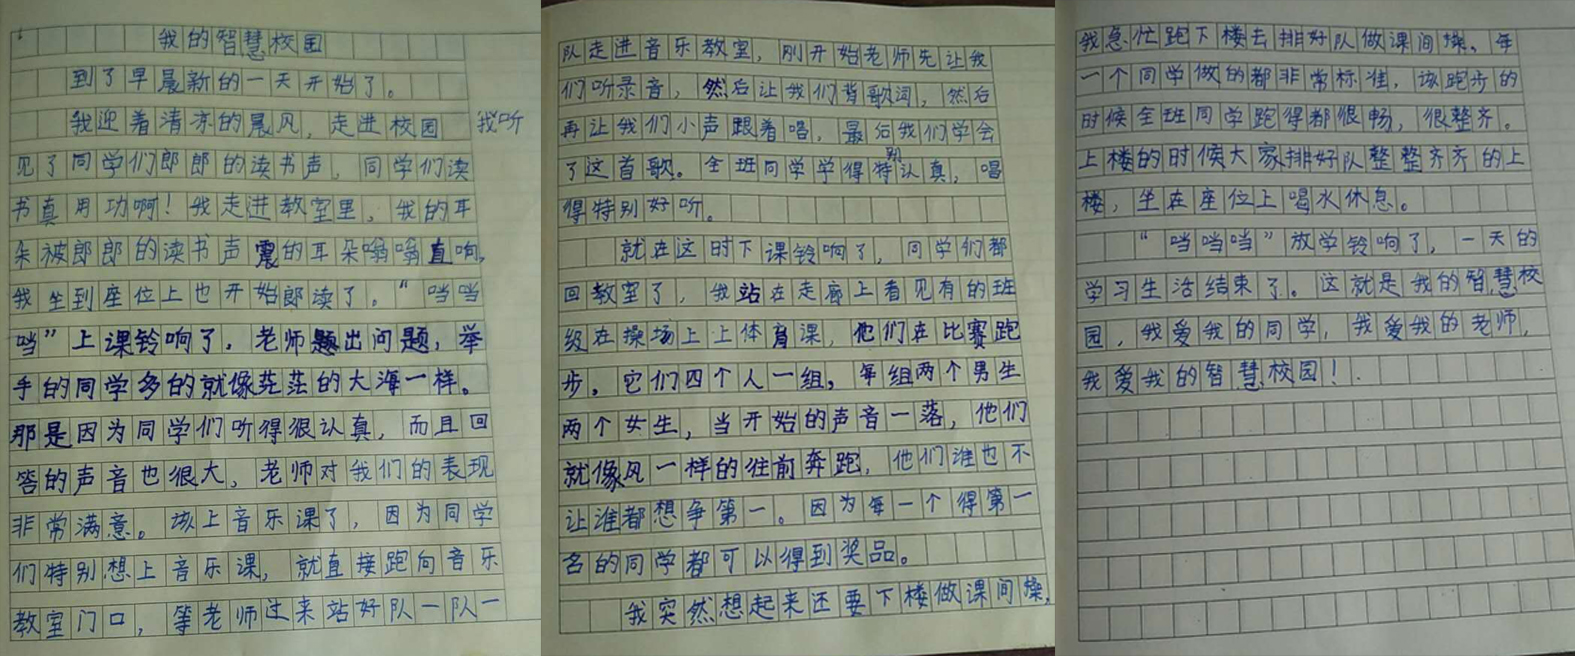 我的智慧校园
到了早晨新的一天开始了。
我迎着清凉的晨风，走进校园 我听
见了同学们郎郎的读书声，同学们读
书真用功啊！我走进教室里，我的耳
朵被郎郎的读书声震的耳朵嗡嗡直响，
我坐到座位上也开始郎读了。“当当
当”上课铃响了，老师题出问题，举
手的同学多的就像茫茫的大海一样。
那是因为同学们听得狠认真，而且回
答的声音也很大，老师对我们的表现
非常满意。该上音乐课了，因为同学
们特别想上音乐课，就直接跑向音乐
教室门口，等老师过来站好队一队一
队走进音乐教室，刚开始老师先让我
们听录音，然后让我们背歌词，然后
再让我们小声跟着唱，最后我们学会
了这首歌。全班同学学得特别认真，唱
得特别好听。
就在这时下课铃响了，同学们都
回教室了，我站在走廊上看见有的班
级在操场上上体育课，他们在比赛跑
步。它们四个人一组，每组两个男生
两个女生，当开始的声音一落，他们
就像风一样的往前奔跑，他们谁也不
让谁都想争第一。因为每一个得第一
名的同学都可以得到奖品。
我突然想起来还要下楼做课间操，
我急忙跑下楼去排好队做课间操，每
一个同学做的都非常标准，该跑步的
时候全班同学跑得都很畅，很整齐。
上楼的时候大家排好队整整齐齐的上
楼，坐在座位上喝水休息。
“当当当”放学铃响了，一天的
学习生活结束了。这就是我的智慧校
园，我爱我的同学，我爱我的老师，
我爱我的智慧校园！